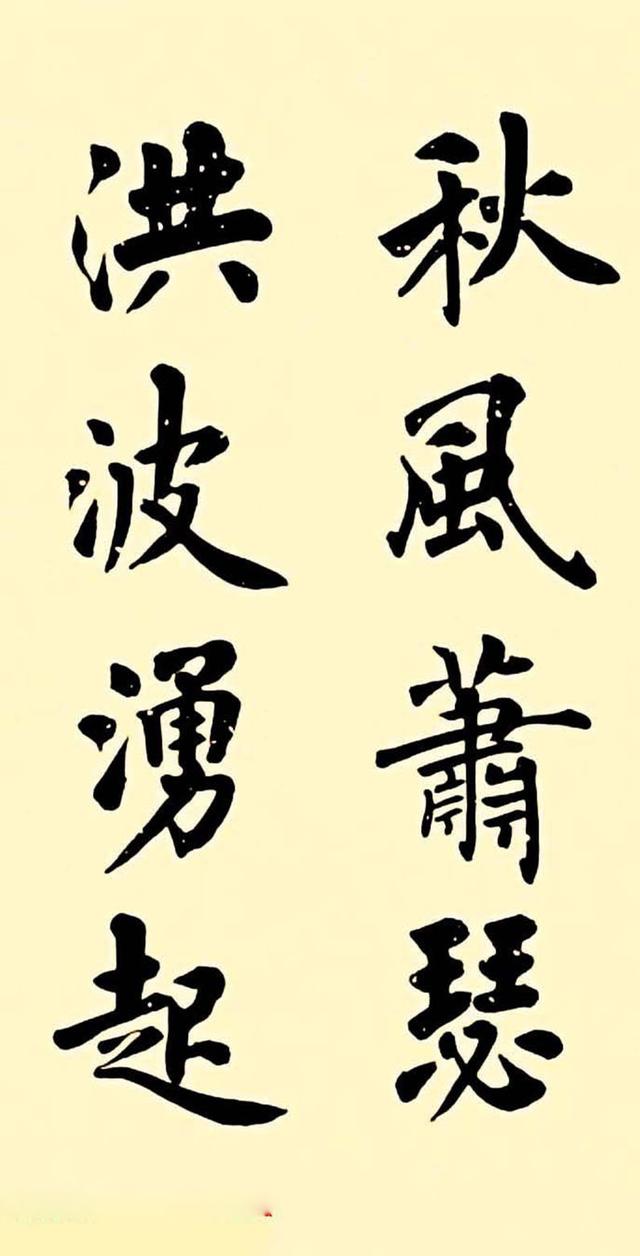 秋風蕭瑟
洪波湧起